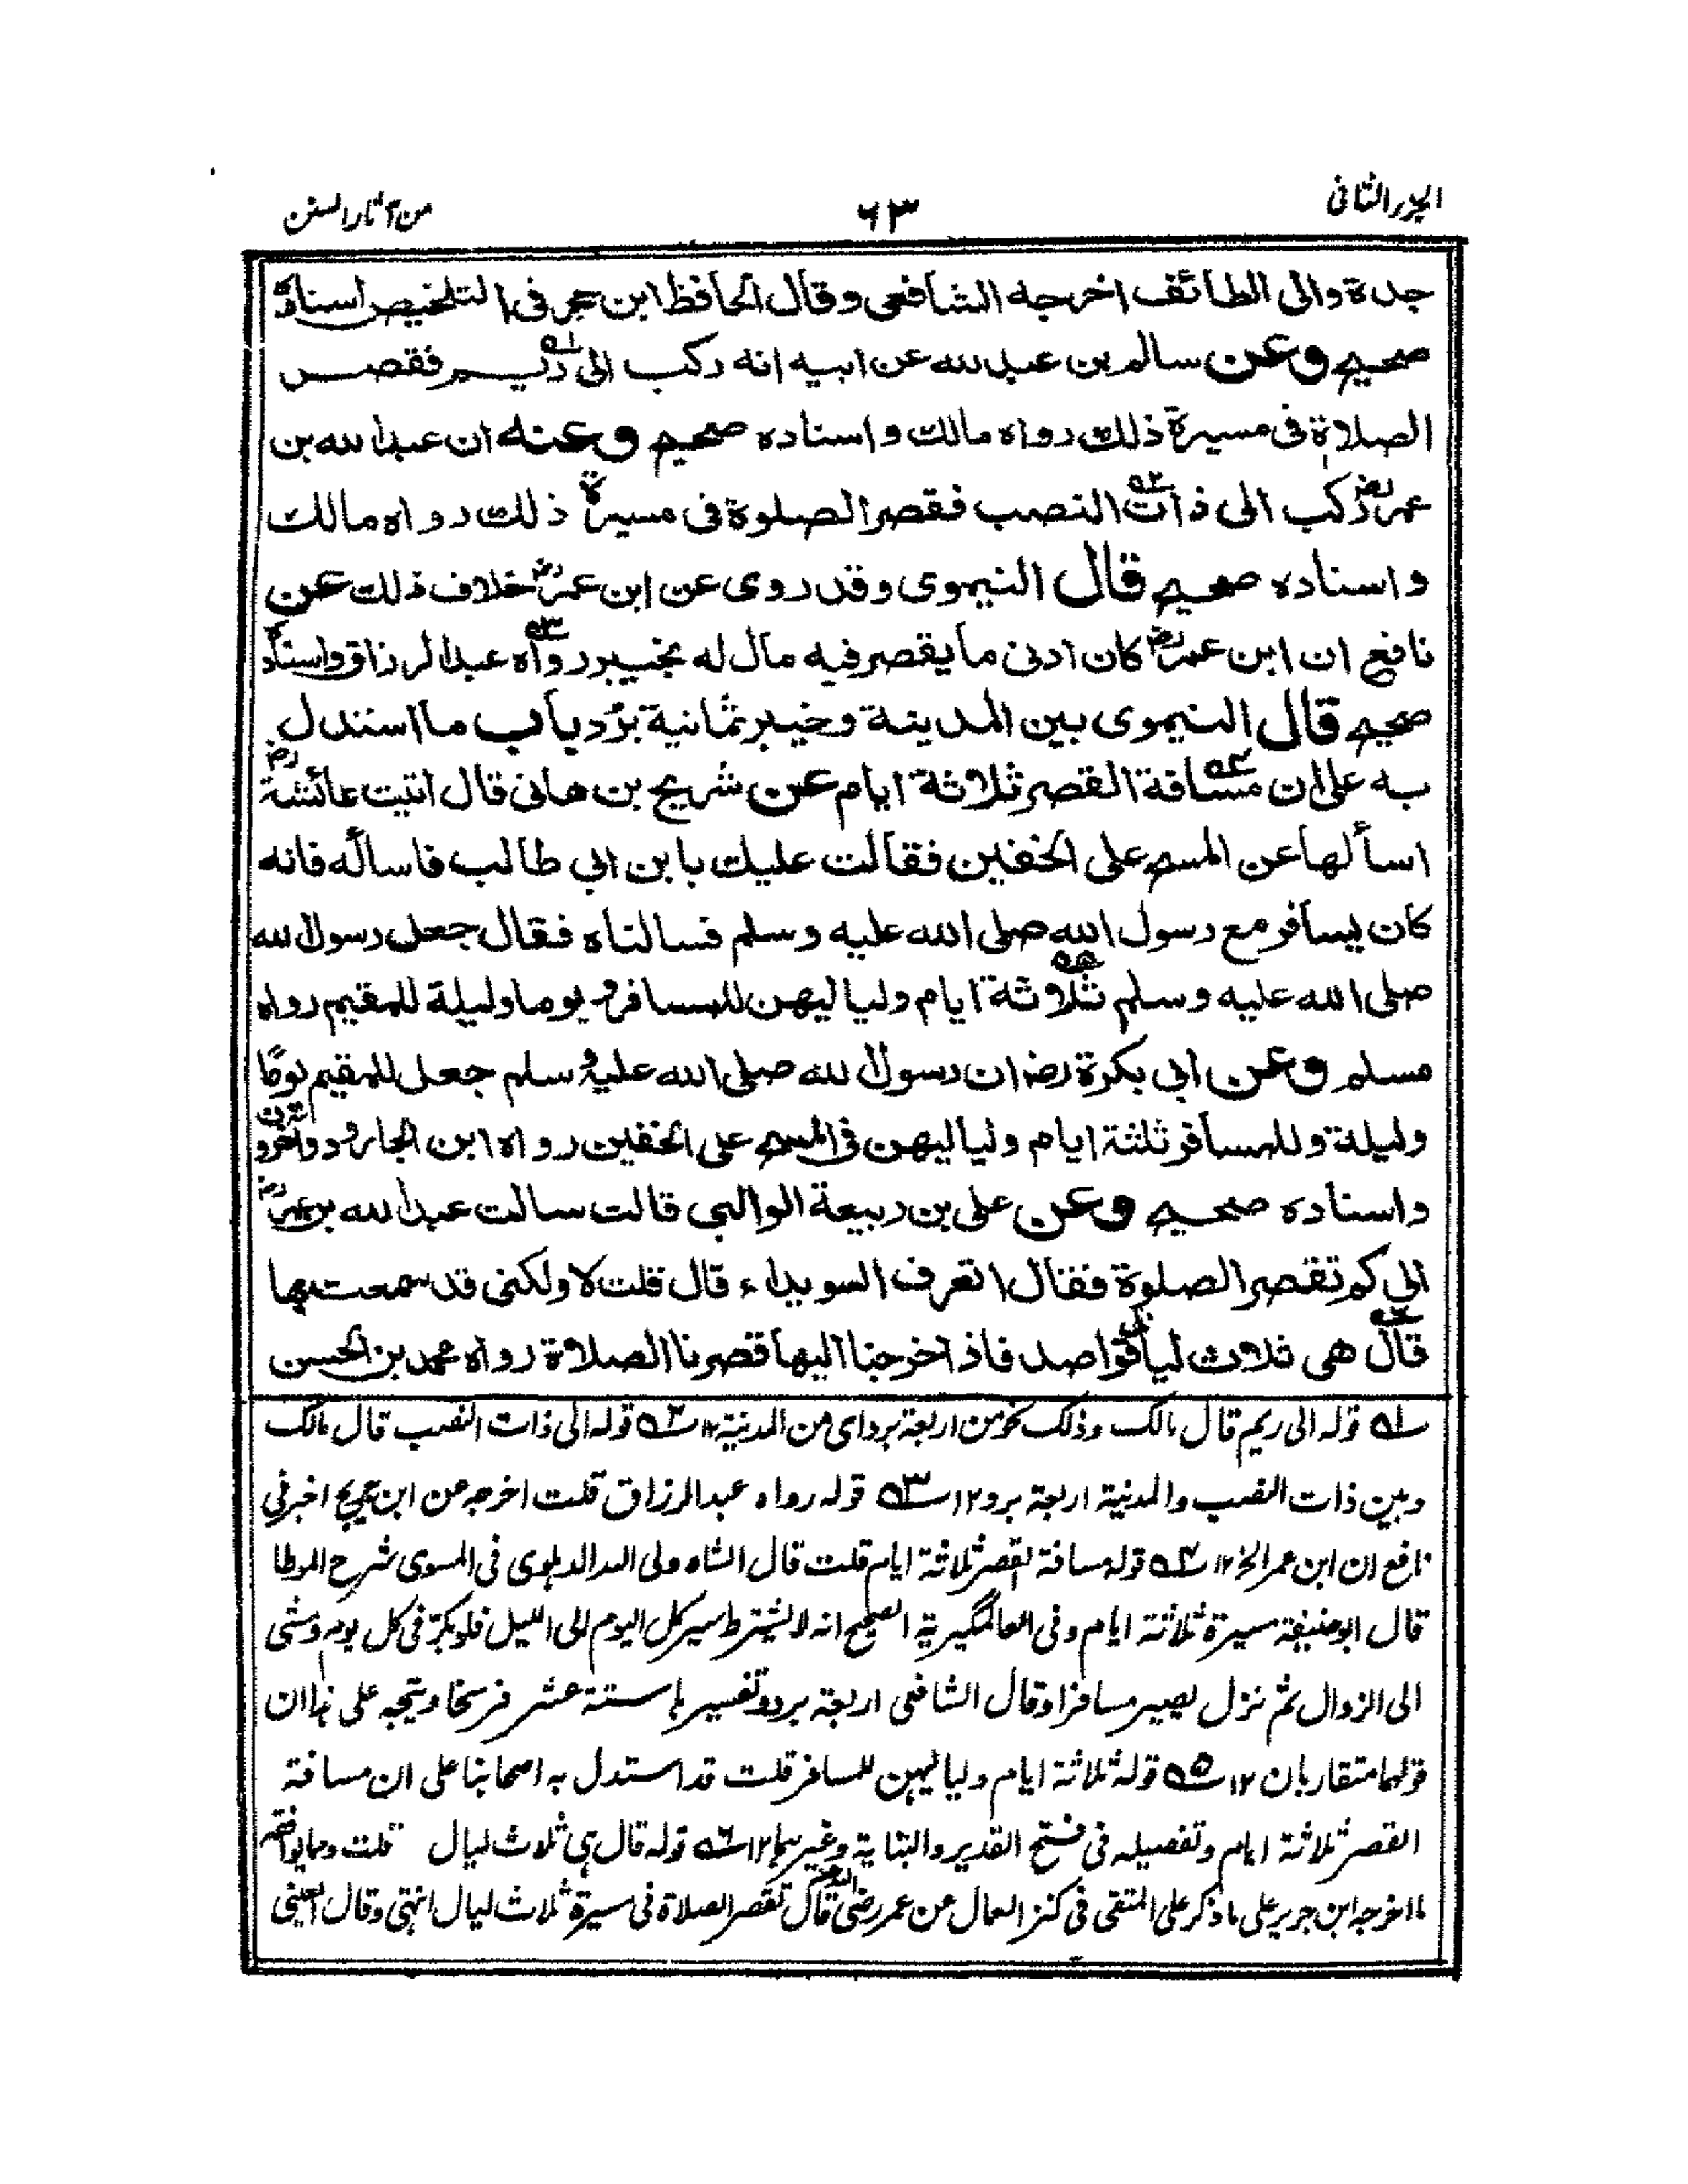 الجزء الثانى
٦٣
من آثار السنن
جدة والى الطائف اخرجه الشافعى وقال الحافظ ابن حجر فى التلخيص اسناده
صحيح وعن سالم بن عبد الله عن ابيه انه ركب الى ريم فقصر
الصلاة فى مسيرة ذلك رواه مالك واسناده صحيح وعنه ان عبد الله بن
عمر رض ركب الى ذات النصب فقصر الصلوة فى مسيرة ذلك رواه مالك
واسناده صحيح قال النيموى وقد روى عن ابن عمر رض خلاف ذلك عن
نافع ان ابن عمر رض كان ادنى ما يقصر فيه مال له بخيبر رواه عبد الرزاق واسناده
صحيح قال النيموى بين المدينة وخيبر ثمانية برد باب ما استدل
به على ان مسافة القصر ثلاثة ايام عن شريح بن هانى قال اتيت عائشة رض
اسألها عن المسح على الخفين فقالت عليك بابن ابي طالب فاساله فانه
كان يسافر مع رسول الله صلى الله عليه وسلم فسالناه فقال جعل رسول الله
صلى الله عليه وسلم ثلاثة ايام ولياليهن للمسافر ويوما وليلة للمقيم رواه
مسلم وعن ابي بكرة رض ان رسول الله صلى الله عليه وسلم جعل للمقيم يومًا
وليلة وللمسافر ثلثة ايام ولياليهن فى المسح على الخفين رواه ابن الجارود واخرون
واسناده صحيح وعن على بن ربيعة الوالبى قالت سالت عبد الله بن عمر رض
الى كم تقصر الصلوة فقال اتعرف السويداء قال قلت لا ولكنى قد سمعت بها
قال هى ثلاث ليال قواصد فاذا خرجنا اليها قصرنا الصلاة رواه محمد بن الحسن
ـ١ـه قوله الى ريم قال مالك وذلك نحو من اربعة برد اى من المدينة ١٢ ـ٢ـه قوله الى ذات النصب قال مالك
وبين ذات النصب والمدينة اربعة برد ١٢ ـ٣ـه قوله رواه عبد الرزاق قلت اخرجه عن ابن جريج اخبرنى
نافع ان ابن عمر الخ ١٢ ـ٤ـه قوله مسافة القصر ثلاثة ايام قلت قال الشاه ولى الله الدهلوى فى المسوى شرح الموطا
قال ابو حنيفة مسيرة ثلاثة ايام وفى العالمگيرية الصحيح انه لا يشترط سير كل اليوم الى الليل فلو بكّر فى كل يوم ومشى
الى الزوال ثم نزل يصير مسافرا وقال الشافعى اربعة برد وتفسيرها ستة عشر فرسخا ويتجه على هذا ان
قولهما متقاربان ١٢ ـ٥ـه قوله ثلاثة ايام ولياليهن للمسافر قلت قد استدل به اصحابنا على ان مسافة
القصر ثلاثة ايام وتفصيله فى فتح القدير والبناية وغيرهما ١٢ ـ٦ـه قوله قال هى ثلاث ليال قلت ومما يوافقه
ما اخرجه ابن جرير على ما ذكر على المتقى فى كنز العمال عن عمر رضى الله عنه قال تقصر الصلاة فى مسيرة ثلاث ليال انتهى وقال العينى